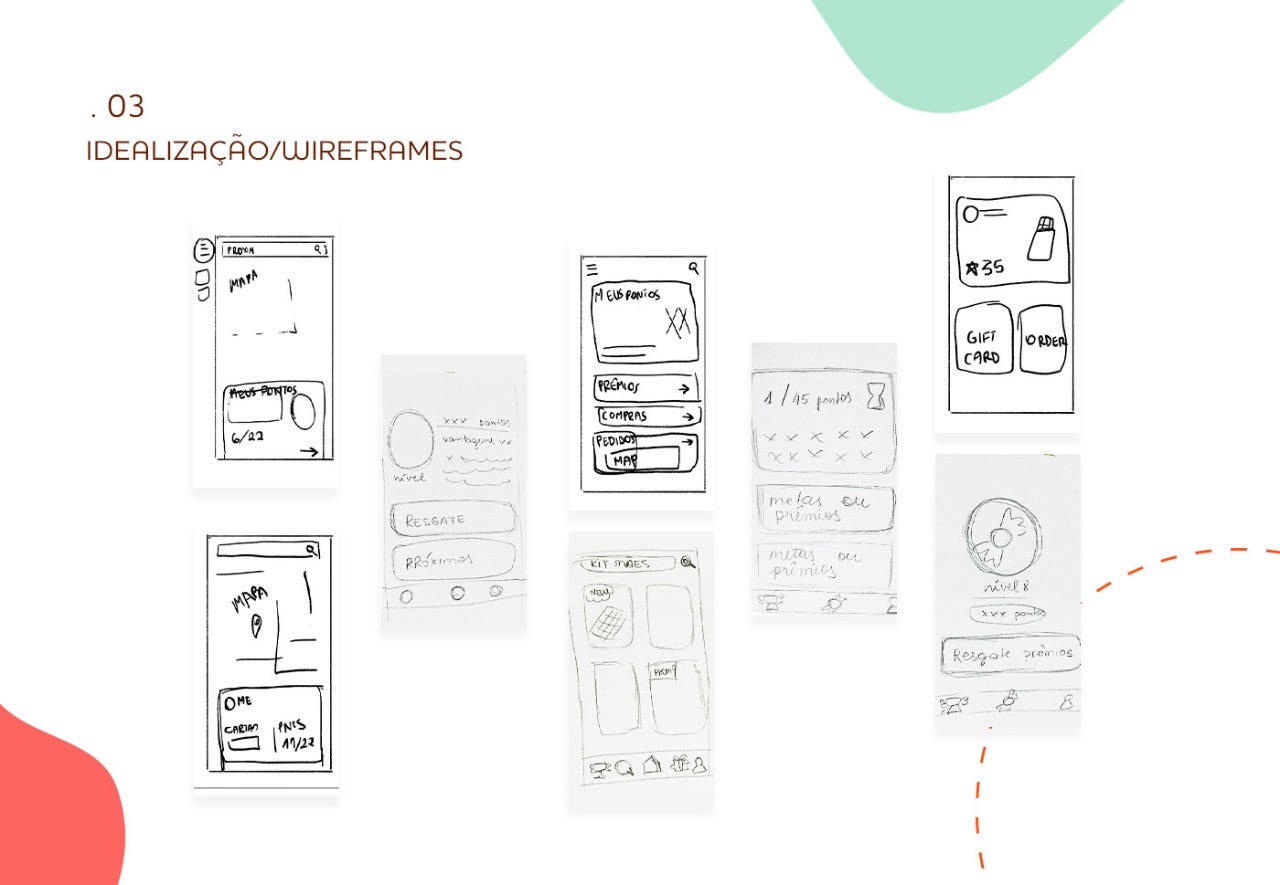 . 03
IDEALIZAÇÃO/WIREFRAMES
PROXM
MAPA
MEUS PONTOS
6/22
MAPA
ME
PNTS
11/22
xxx pontos
vantagem xx
x
nível
RESGATE
PRÓXIMOS
MEUS PONTOS
XX
PRÊMIOS
COMPRAS
PEDIDOS
MAP
KIT MÃES
NEW
1/45 pontos
x x x x x
x x x x x
metas ou
prêmios
metas ou
prêmios
35
GIFT
CARD
ORDER
nível 8
xxx pontos
Resgate prêmios